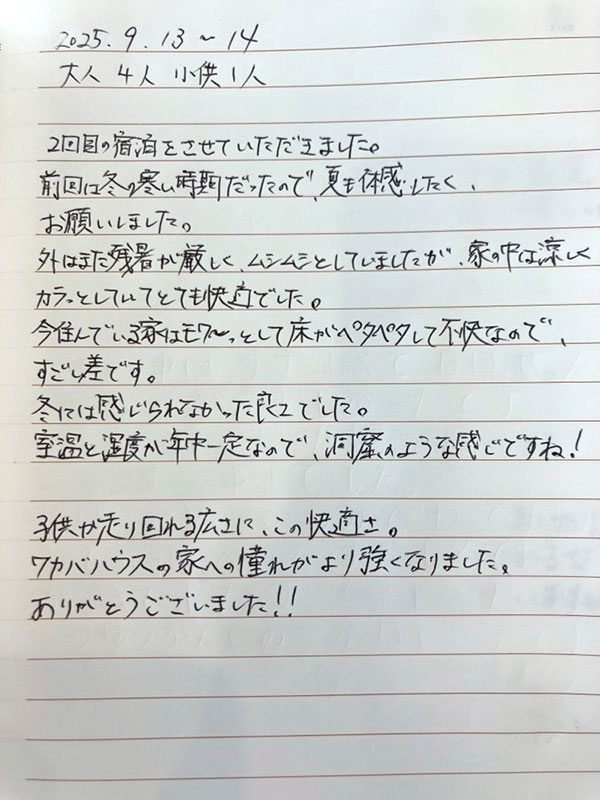 2025.9.13〜14
大人 4人 小供 1人
2回目の宿泊をさせていただきました。
前回は冬の寒い時期だったので、夏も体感したく、
お願いしました。
外はまだ残暑が厳しく、ムシムシとしていましたが、家の中は涼しく
カラッとしていてとても快適でした。
今住んでいる家はモワ〜っとして床がペタペタして不快なので、
すごい差です。
冬には感じられなかった良さでした。
室温と湿度が年中一定なので、洞窟のような感じですね!
子供が走り回れる広さに、この快適さ。
ワカバハウスの家への憧れがより強くなりました。
ありがとうございました!!